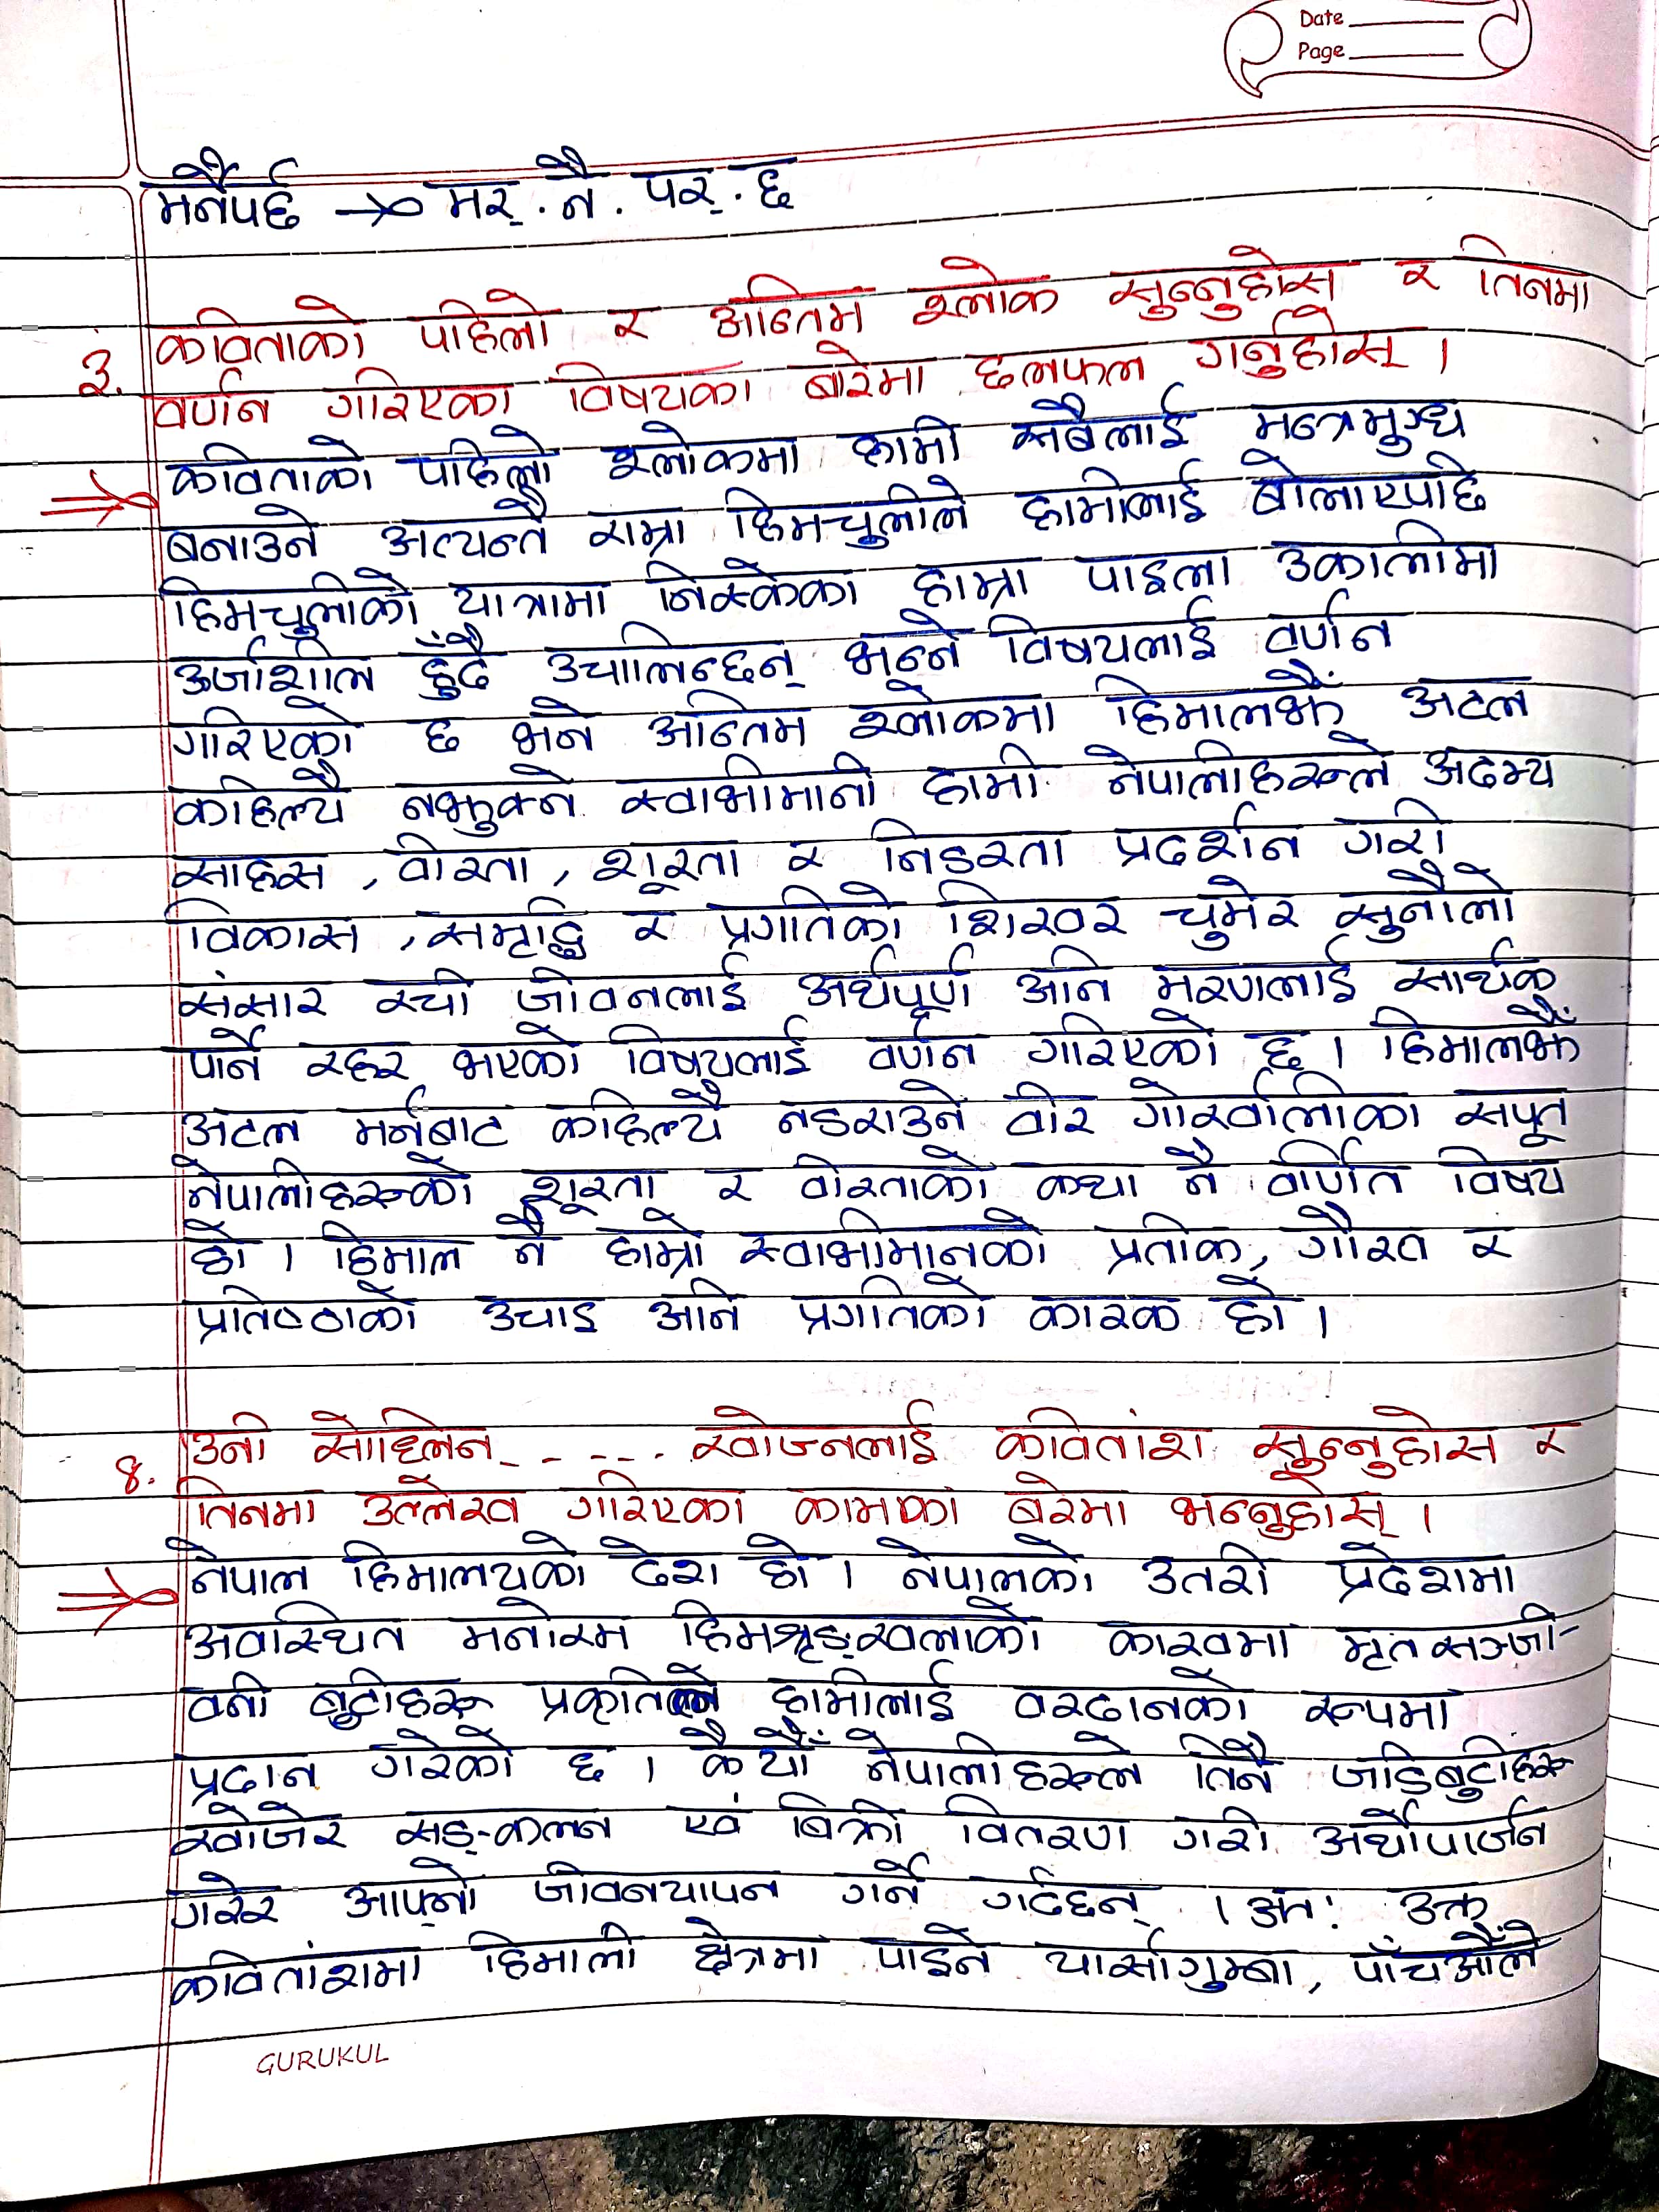 Date
Page
मर्नैपर्छ → मर्. नै. पर्. छ
३. कविताको पहिलो र अन्तिम श्लोक सुन्नुहोस् र तिनमा
वर्णन गरिएका विषयका बारेमा छलफल गर्नुहोस् ।
कविताको पहिलो श्लोकमा हामी सबैलाई मन्त्रमुग्ध
बनाउने अत्यन्तै राम्रा हिमचुलीले हामीलाई बोलाएपछि
हिमचुलीको यात्रामा निस्केका हाम्रा पाइला उकालीमा
ऊर्जाशील हुँदै उचालिन्छन् भन्ने विषयलाई वर्णन
गरिएको छ भने अन्तिम श्लोकमा हिमालझैं अटल
कहिल्यै नझुक्ने स्वाभीमानी हामी नेपालीहरूले अदम्य
साहस , वीरता , शूरता र निडरता प्रदर्शन गरी
विकास , समृद्धि र प्रगतिको शिखर चुमेर सुनौलो
संसार रची जीवनलाई अर्थपूर्ण अनि मरणलाई सार्थक
पार्ने रहर भएको विषयलाई वर्णन गरिएको छ । हिमालझैं
अटल मर्नबाट कहिल्यै नडराउने वीर गोर्खालीका सपूत
नेपालीहरूको शूरता र वीरताको कथा नै वर्णित विषय
हो । हिमाल नै हाम्रो स्वाभीमानको प्रतीक, गौरव र
प्रतिष्ठाको उचाइ अनि प्रगतिको कारक हो ।
४. उनी सोध्लिन् - - - - . खोज्नलाई कवितांश सुन्नुहोस र
तिनमा उल्लेख गरिएका कामका बरेमा भन्नुहोस् ।
नेपाल हिमालयको देश हो । नेपालको उतरी प्रदेशमा
अवस्थित मनोरम हिमशृङ्खलाको काखमा मृतसञ्जी-
वनी बुटीहरू प्रकृतिले हामीलाई वरदानको रूपमा
प्रदान गरेको छ । कैयौँ नेपालीहरूले तिनै जडिबुटीहरू
खोजेर सङ्कलन एवं बिक्री वितरण गरी अर्थोपार्जन
गरेर आफ्नो जीवनयापन गर्ने गर्दछन् । अत: उक्त
कवितांशमा हिमाली क्षेत्रमा पाइने यार्सागुम्बा, पाँचऔंले
GURUKUL